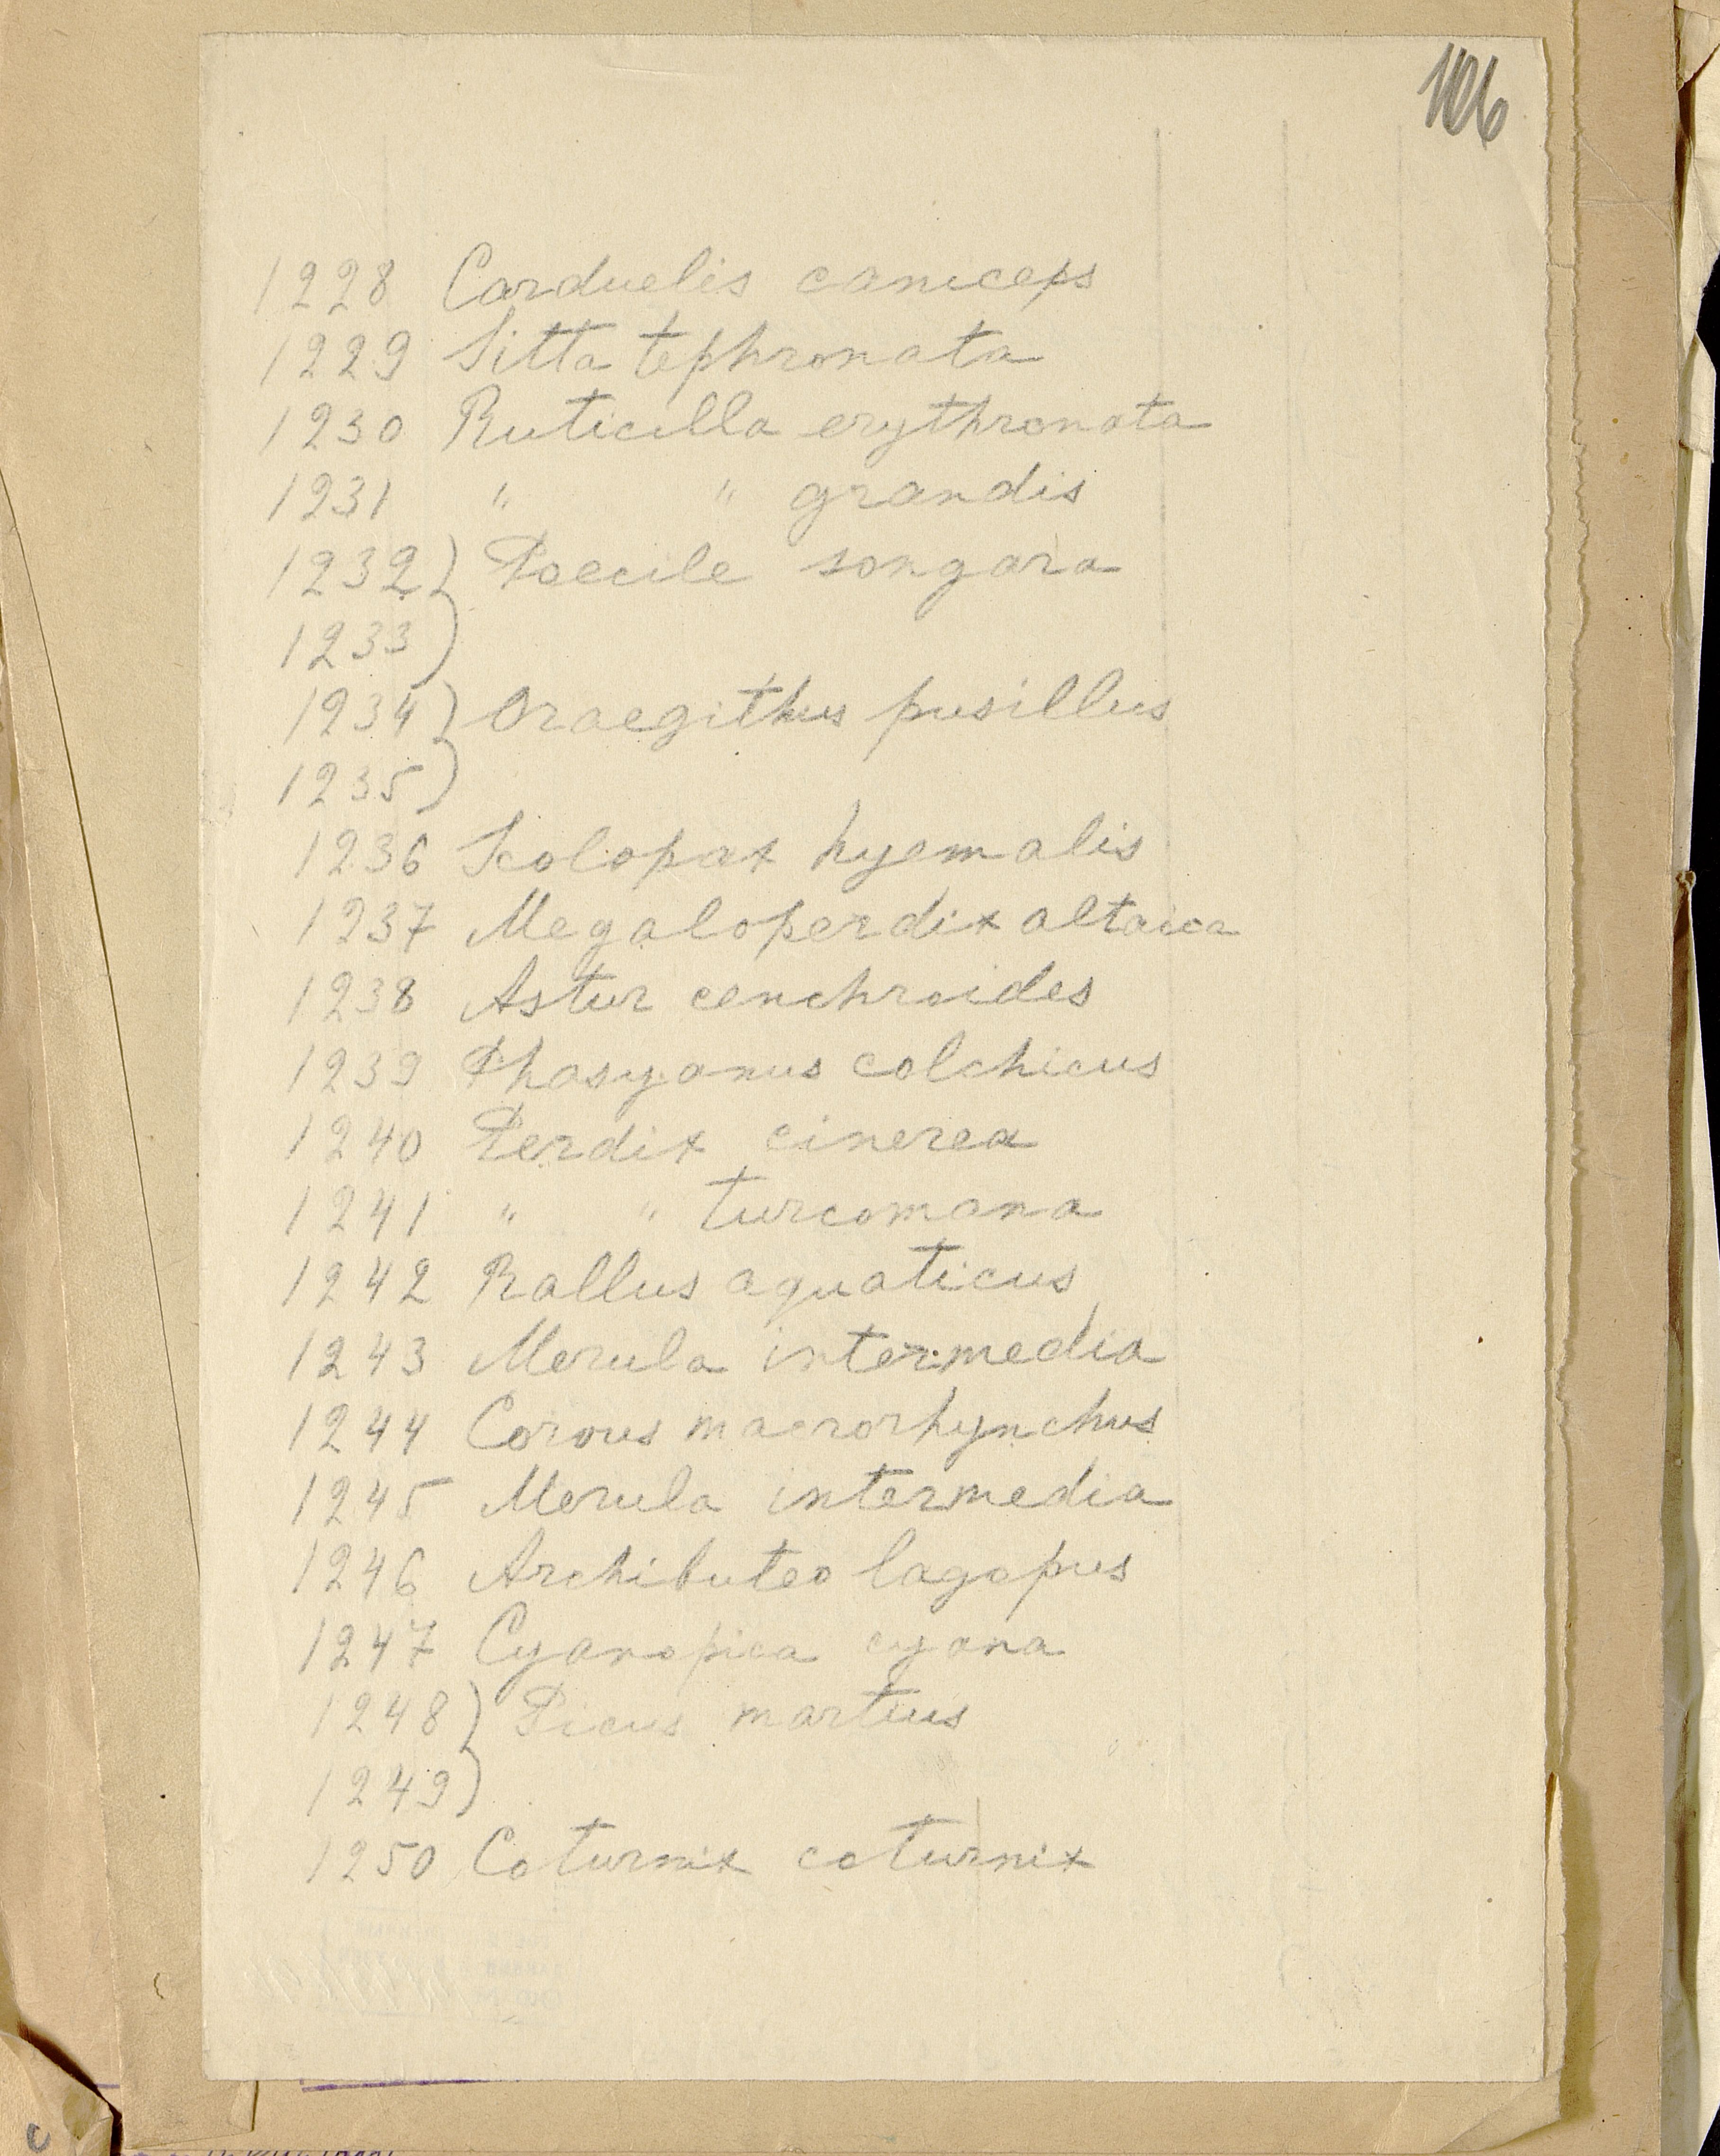 106
1228 Carduelis caniceps
1229 Sitta tephronata
1230 Ruticilla erythronota
1231 " " grandis
1232) Poecile songara
1233)
1234) Oraegithus pusillus
1235)
1236 Scolopax hyemalis
1237 Megaloperdix altaica
1238 Astur cenchroides
1239 Phasyanus colchicus
1240 Perdix cinerea
1241 " " turcomana
1242 Rallus aquaticus
1243 Merula intermedia
1244 Corvus macrorhynchus
1245 Merula intermedia
1246 Archibuteo lagopus
1247 Cyanopica cyana
1248) Picus martius
1249)
1250 Coturnix coturnix